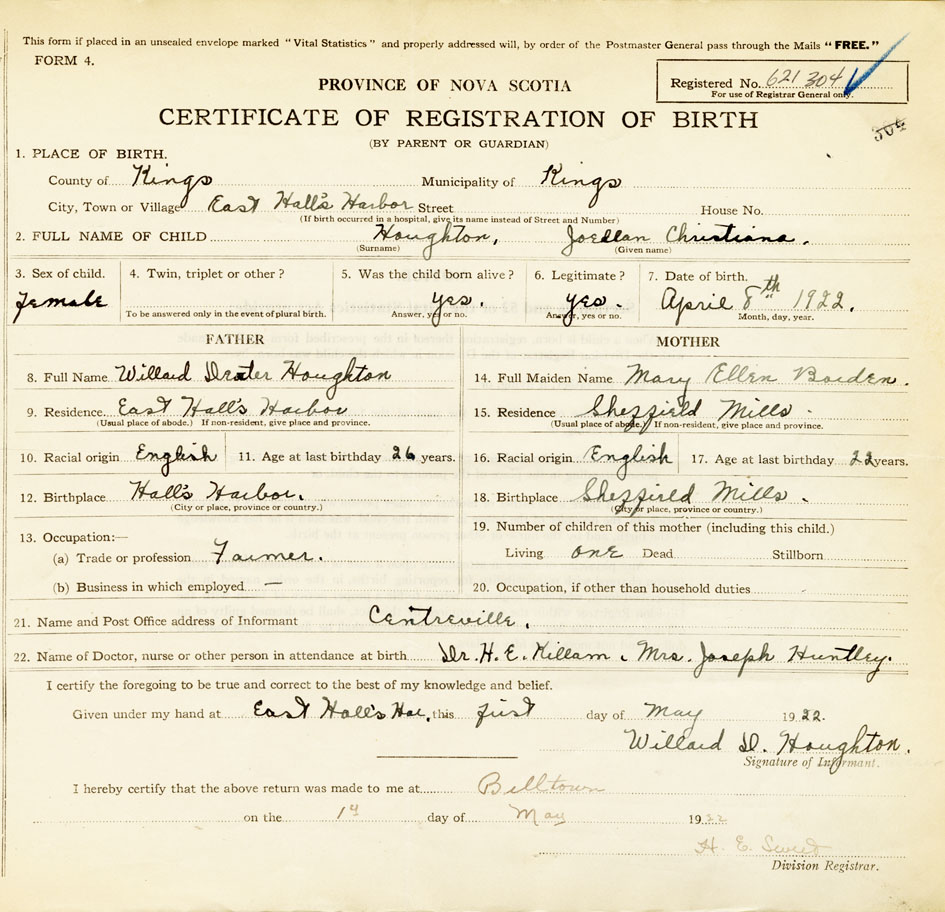 This form if placed in an unsealed envelope marked "Vital Statistics" and properly addressed will, by order of the Postmaster General pass through the Mails "FREE."
FORM 4.
PROVINCE OF NOVA SCOTIA
Registered No. 621 304
For use of Registrar General only.
CERTIFICATE OF REGISTRATION OF BIRTH
304
(BY PARENT OR GUARDIAN)
1. PLACE OF BIRTH.
County of Kings Municipality of Kings
City, Town or Village East Hall's Harbor Street House No.
(If birth occurred in a hospital, give its name instead of Street and Number)
2. FULL NAME OF CHILD Houghton, Christiana.
(Surname) (Given name)
3. Sex of child. 4. Twin, triplet or other? 5. Was the child born alive? 6. Legitimate? 7. Date of birth.
Female yes. yes. April 8th 1922.
To be answered only in the event of plural birth. Answer, yes or no. Answer, yes or no. Month, day, year.
FATHER MOTHER
8. Full Name Willard Houghton 14. Full Maiden Name Mary Ellen Borden.
9. Residence. East Hall's Harbor 15. Residence Sheffield Mills.
(Usual place of abode.) If non-resident, give place and province. (Usual place of abode.) If non-resident, give place and province.
10. Racial origin English 11. Age at last birthday 26 years. 16. Racial origin English 17. Age at last birthday 22 years.
12. Birthplace Hall's Harbor. 18. Birthplace Sheffield Mills.
(City or place, province or country.) (City or place, province or country.)
13. Occupation:— 19. Number of children of this mother (including this child.)
(a) Trade or profession Farmer. Living one Dead Stillborn
(b) Business in which employed — 20. Occupation, if other than household duties
21. Name and Post Office address of Informant Centreville.
22. Name of Doctor, nurse or other person in attendance at birth Dr. H. E. Killam. Mrs. Joseph Huntley.
I certify the foregoing to be true and correct to the best of my knowledge and belief.
Given under my hand at East Hall's Har, this first day of May 1922.
Willard D. Houghton.
Signature of Informant.
I hereby certify that the above return was made to me at Billtown
on the 1st day of May 1922
H. E.
Division Registrar.